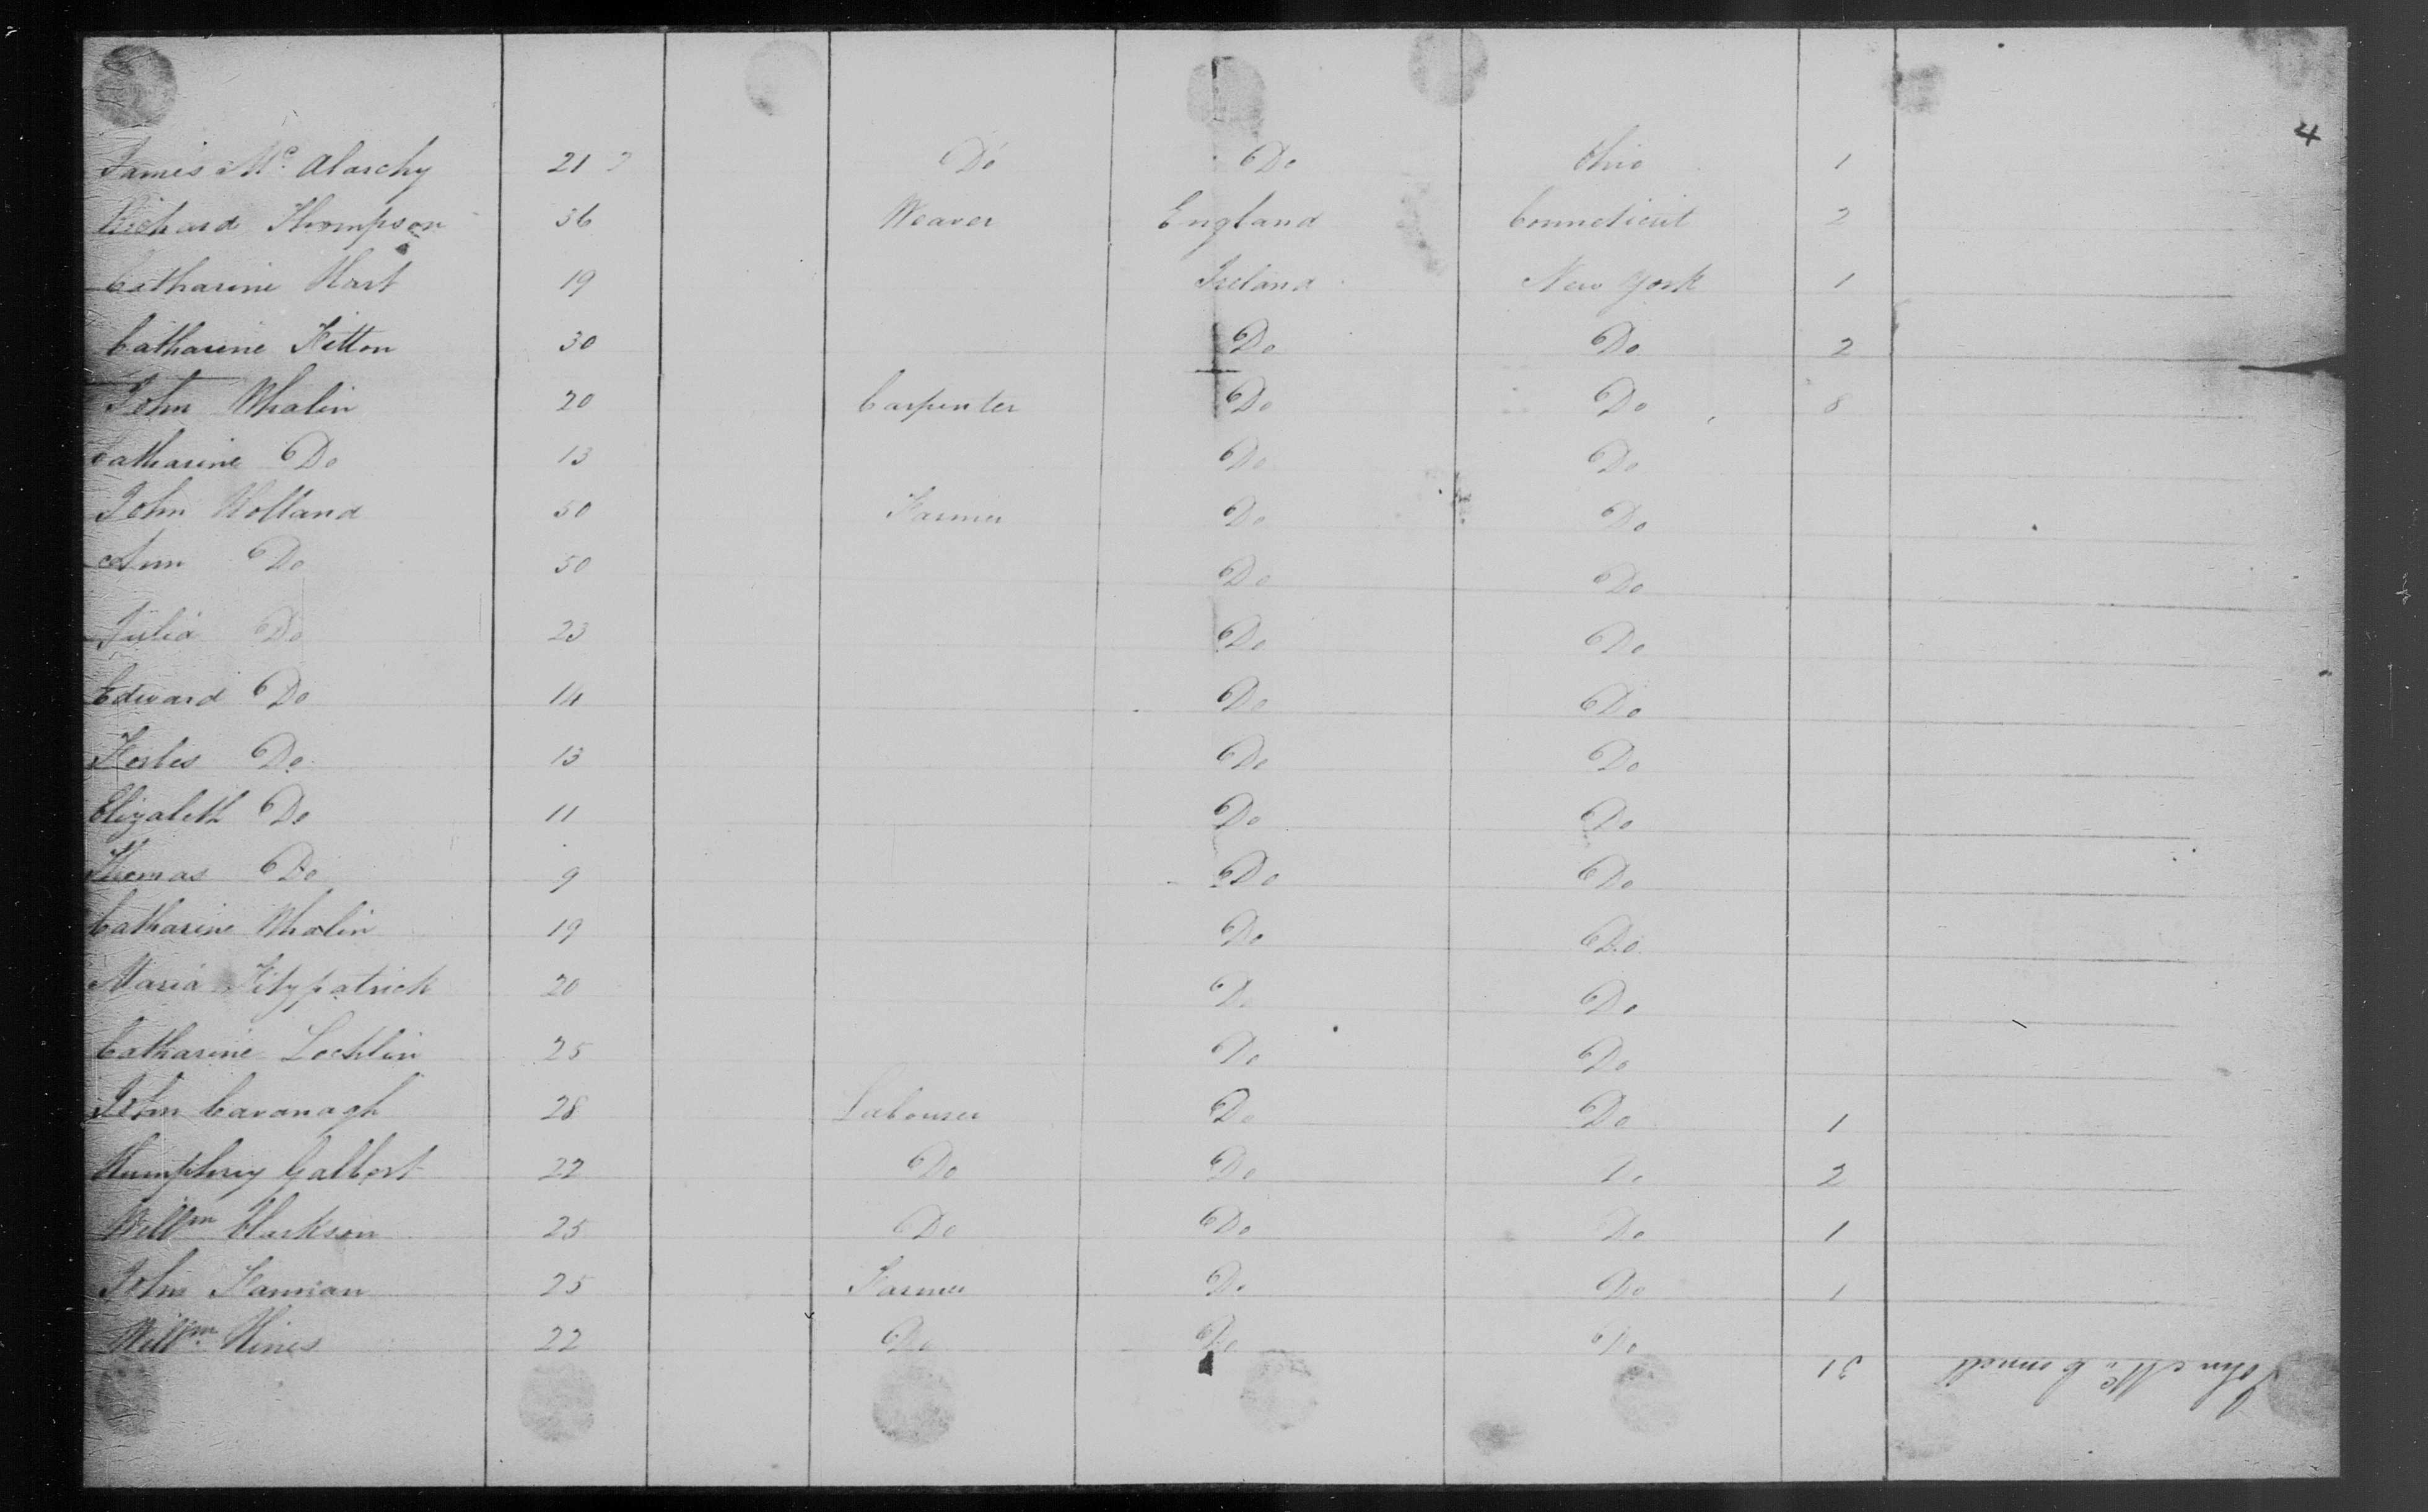 4
James Mc Alarchy 21 Do Do Ohio 1
Richard Thompson 36 Weaver England Conneticut 2
Catharine Hart 19 Ireland New York 1
Catharine Kitton 30 Do Do 2
John Whalin 20 Carpenter Do Do 8
Catharine Do 13 Do Do
John Holland 50 Farmer Do Do
Ann Do 50 Do Do
Julia Do 23 Do Do
Edward Do 14 Do Do
Do 13 Do Do
Elizabeth Do 11 Do Do
Thomas Do 9 Do Do
Catharine Whalin 19 Do Do
Maria Fitzpatrick 20 Do Do
Catharine Lochlin 25 Do Do
John Cavanagh 28 Labourer Do Do 1
Humphrey Galbert 22 Do Do Do 2
Willm Clarkson 25 Do Do Do 1
John 25 Farmer Do Do 1
Willm Hines 22 Do Do Do
31 John Mc Connell